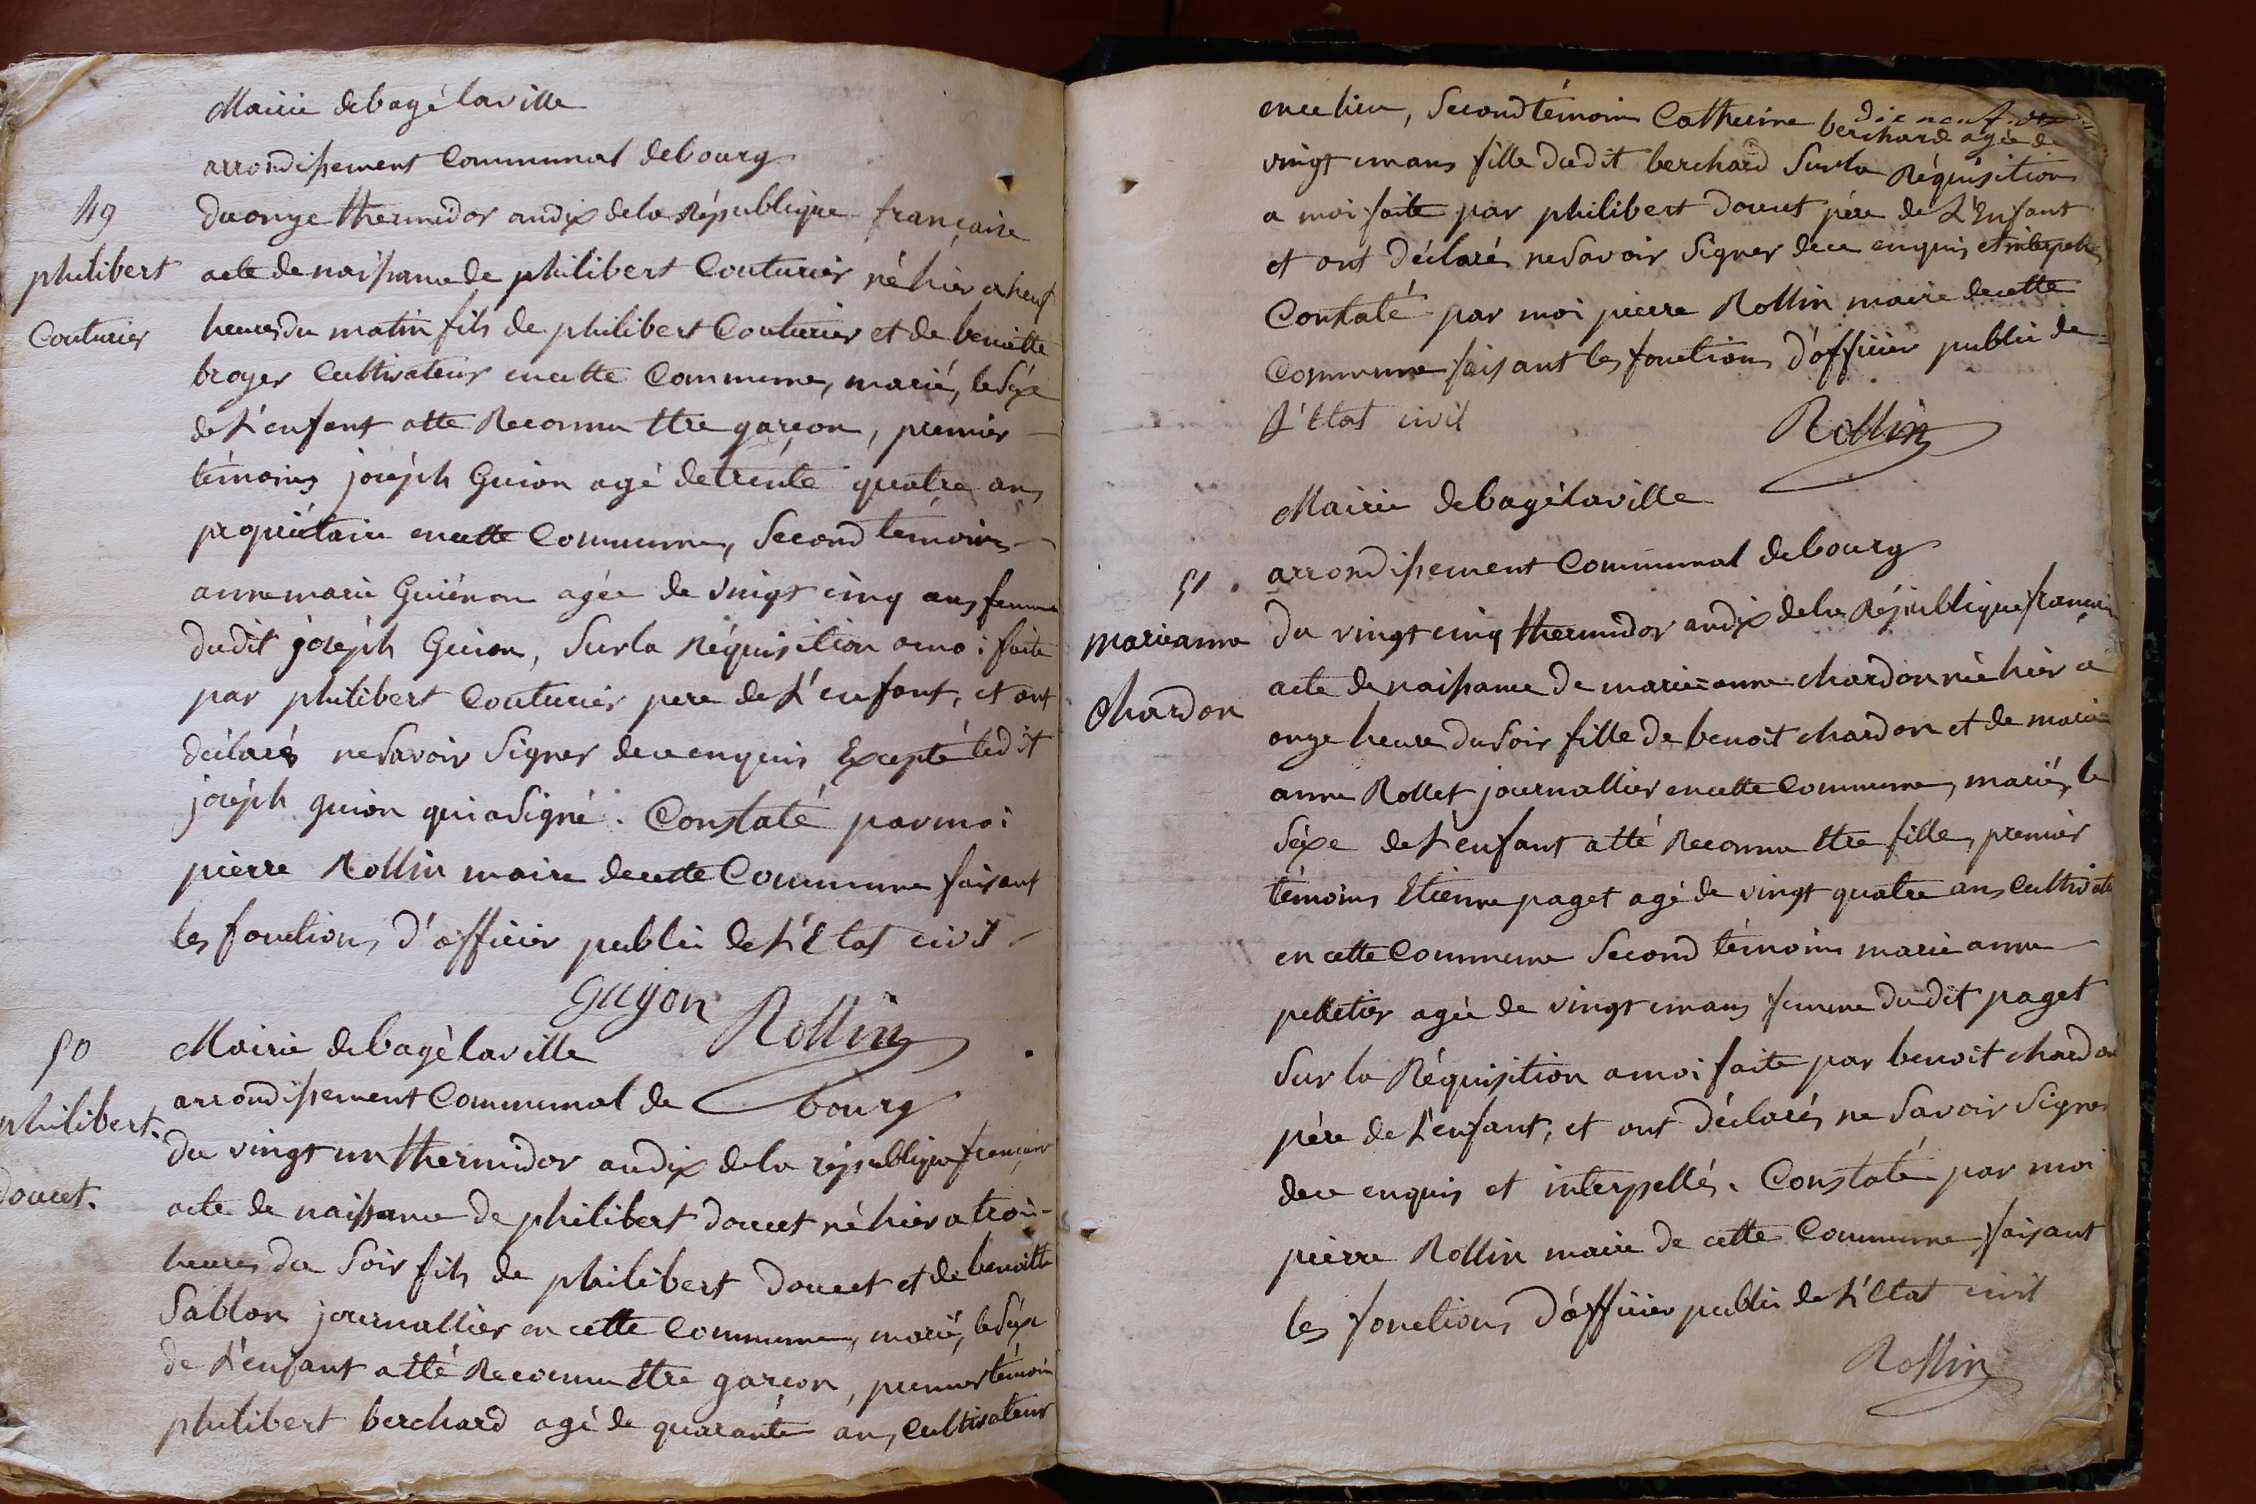 Mairie de bagé laville
arrondissement Communal de bourg
49
du onze thermidor an dix de la République française
philibert
acte de naissance de philibert Couturier né hier a neuf
Couturier
heures du matin fils de philibert Couturier et de benoitte
broyer Cultivateur en cette Commune, mariés, le sexe
de L'enfant a tté Reconnu Ettre garçon, premier
témoins joséph Guion agé de trénte quatre ans
propriétaire en cette Commune, Second témoins
anne marie Guiénon agée de vingt cinq ans femme
dudit joséph Guion, Sur la Réquisition a moi faite
par philibert Couturier pere de L'enfant, et ont
déclarés ne Savoir Signer de ce enquis Excepté ledit
joséph guion qui a Signé. Constaté par moi
pierre Rollin maire de cette Commune faisant
les fonctions d'officier public de L'Etat civil
Guyon Rollin
50
Mairie de bagé laville
arrondissement Communal de bourg
philibert.
du vingt un thermidor an dix de la république française
doucet.
acte de naissance de philibert doucet né hier a trois
heures du Soir fils de philibert doucet et de benoitte
Sablon journallier en cette Commune, mariés, le Sexe
de L'enfant a tté Reconnu Ettre garçon, premier témoin
philibert berchard agé de quarante ans, Cultivateur
en ce lieu, Second témoins Catherine berchard agée de
dix neuf
vingt un ans fille dudit berchard Sur la Réquisition
a moi faite par philibert doucet pére de L'Enfant
et ont déclarés ne Savoir Signer de ce enquis et interpellés
Constaté par moi pierre Rollin maire de cette
Commune faisant les fonctions d'officier public de
L'Etat civil
Rollin
Mairie de bagé laville
arrondissement Communal de bourg
51.
du vingt cinq thermidor an dix de la République française
marieanne
acte de naissance de marie anne chardon née hier a
Chardon
onze heure du Soir fille de benoit chardon et de marie
anne Rollet journallier en cette Commune, mariés, le
Séxe de L'enfant a tté Reconnu Ettre fille, premier
témoins Etienne paget agé de vingt quatre ans Cultivateur
en cette Commune Second témoins marie anne
pelletier agée de vingt un ans femme dudit paget
Sur la Réquisition a moi faite par benoit chardon
pére de L'enfant, et ont déclarés ne Savoir Signer
de ce enquis et interpellés. Constaté par moi
pierre Rollin maire de cette Commune faisant
les fonctions d'officier public de L'Etat civil
Rollin